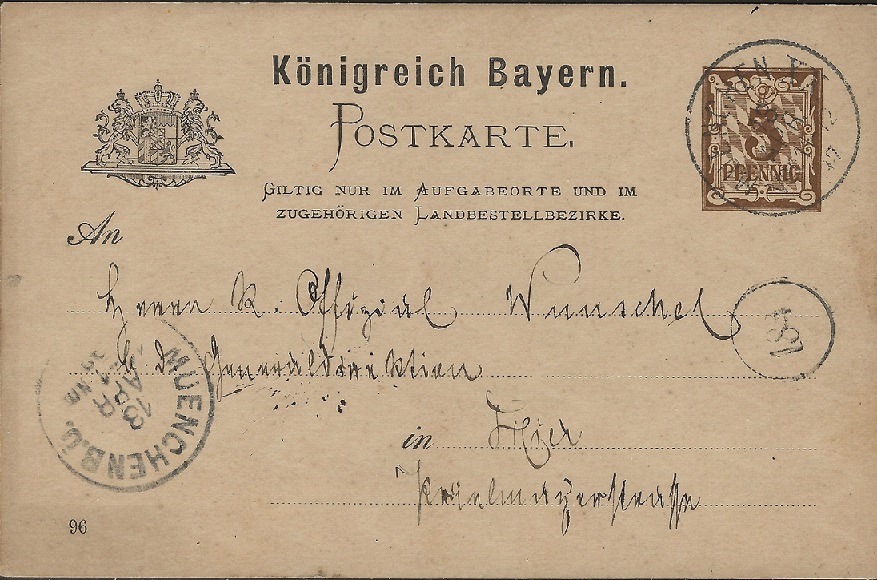 Königreich Bayern.
POSTKARTE.
GILTIG NUR IM AUFGABEORTE UND IM
ZUGEHÖRIGEN LANDBESTELLBEZIRKE.
3
PFENNIG
An
Herrn K. Offizial Wunschel
184
b. d. Generaldirektion
MUENCHEN B.Ö.
13
APR
in Hier
96